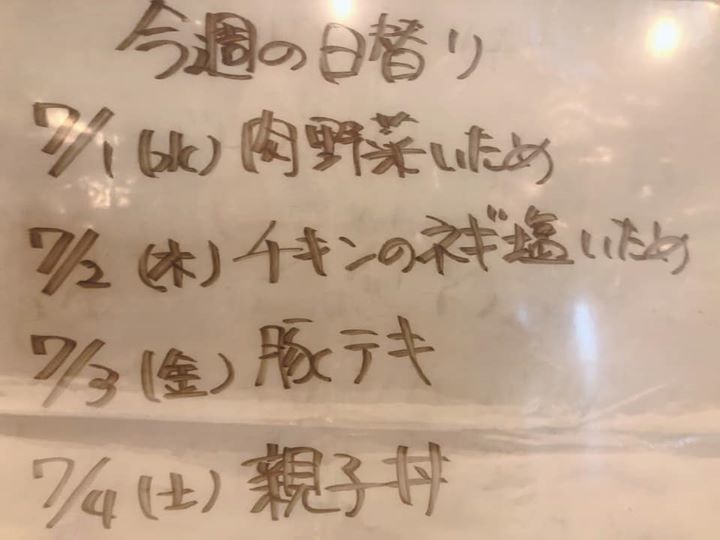 今週の日替り
7/1(水)肉野菜いため
7/2(木)チキンのネギ塩いため
7/3(金)豚テキ
7/4(土)親子丼